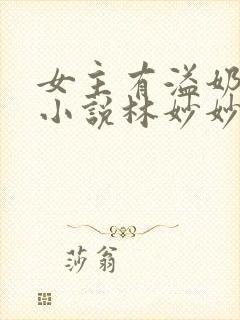 女主有溢奶
小说林妙妙
莎翁